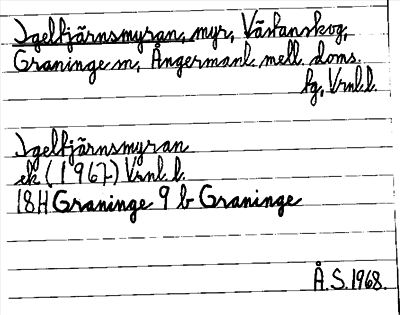 Igeltjärnsmyran, myr, Västanskog,
Graninge sn, Ångermanl. mell. doms.
fg, Vrnl. l.
Igeltjärnsmyran
ek (1967) Vrnl. l.
18H Graninge 9 b Graninge
Å.S. 1968.